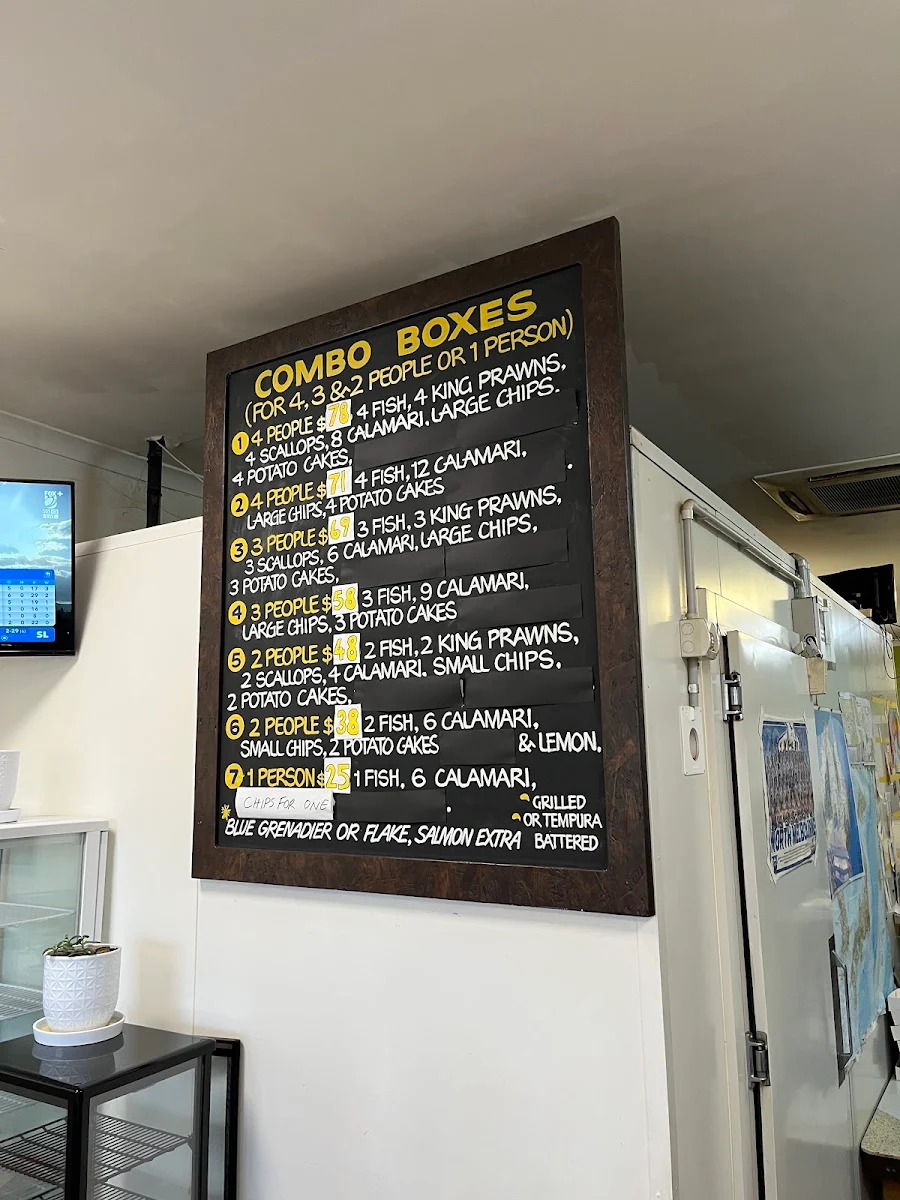 COMBO BOXES
(FOR 4, 3 & 2 PEOPLE OR 1 PERSON)
1 4 PEOPLE $78, 4 FISH, 4 KING PRAWNS,
4 SCALLOPS, 8 CALAMARI, LARGE CHIPS.
4 POTATO CAKES,
2 4 PEOPLE $71 4 FISH, 12 CALAMARI,
LARGE CHIPS, 4 POTATO CAKES .
3 3 PEOPLE $69 3 FISH, 3 KING PRAWNS,
3 SCALLOPS, 6 CALAMARI, LARGE CHIPS,
3 POTATO CAKES,
4 3 PEOPLE $58 3 FISH, 9 CALAMARI,
LARGE CHIPS, 3 POTATO CAKES
5 2 PEOPLE $48 2 FISH, 2 KING PRAWNS,
2 SCALLOPS, 4 CALAMARI. SMALL CHIPS.
2 POTATO CAKES,
6 2 PEOPLE $38 2 FISH, 6 CALAMARI,
SMALL CHIPS, 2 POTATO CAKES & LEMON.
7 1 PERSON $25 1 FISH, 6 CALAMARI,
CHIPS FOR ONE .
GRILLED
OR TEMPURA
BATTERED
* BLUE GRENADIER OR FLAKE, SALMON EXTRA
FOX+
2-29
SL
NORTH MELBOURNE